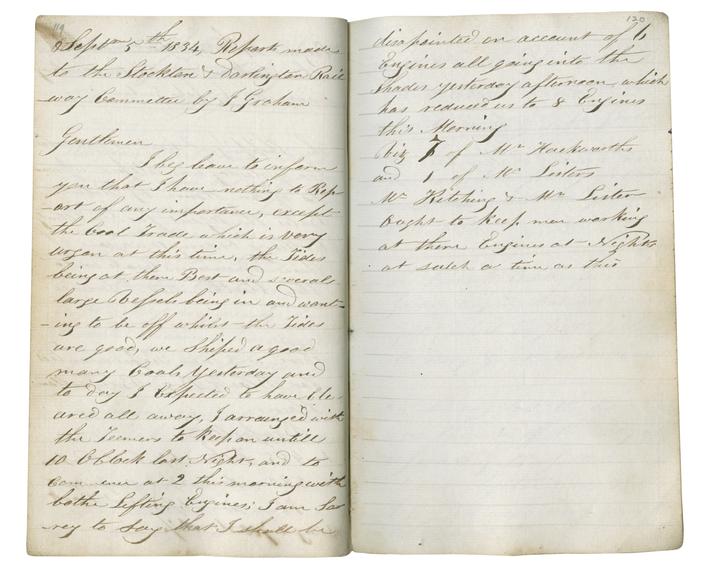 119
Septbr 5th 1834, Reports made
to the Stockton & Darlington Rail
way Committee by J Graham
Gentlemen
I beg leave to inform
you that I have nothing to Rep-
ort of any importance, except
the Coal Trade which is very
urgen at this time, the Tides
being at there Best and severals
large Vessels being in and want-
-ing to be off whilst the Tides
are good, we Shiped a good
many Coals Yesterday and
to day I Expected to have Cle
ared all away, I arranged with
the Teemers to keep on untill
10 OClock last Night, and to
com ence at 2 this morning with
bothe Lifting Engines; I am Sor
rey to Say that I shall be
120
disapointed on account of 6
Engines all going into the
Shades Yesterday afternoon which
has reduced us to 8 Engines
this Morning
Viz 7 of Mr Hackworths
and 1 of Mr Listers
Mr Kitching & Mr Lister
Ought to keep men working
at there Engines at Nights
at sutch a time as this